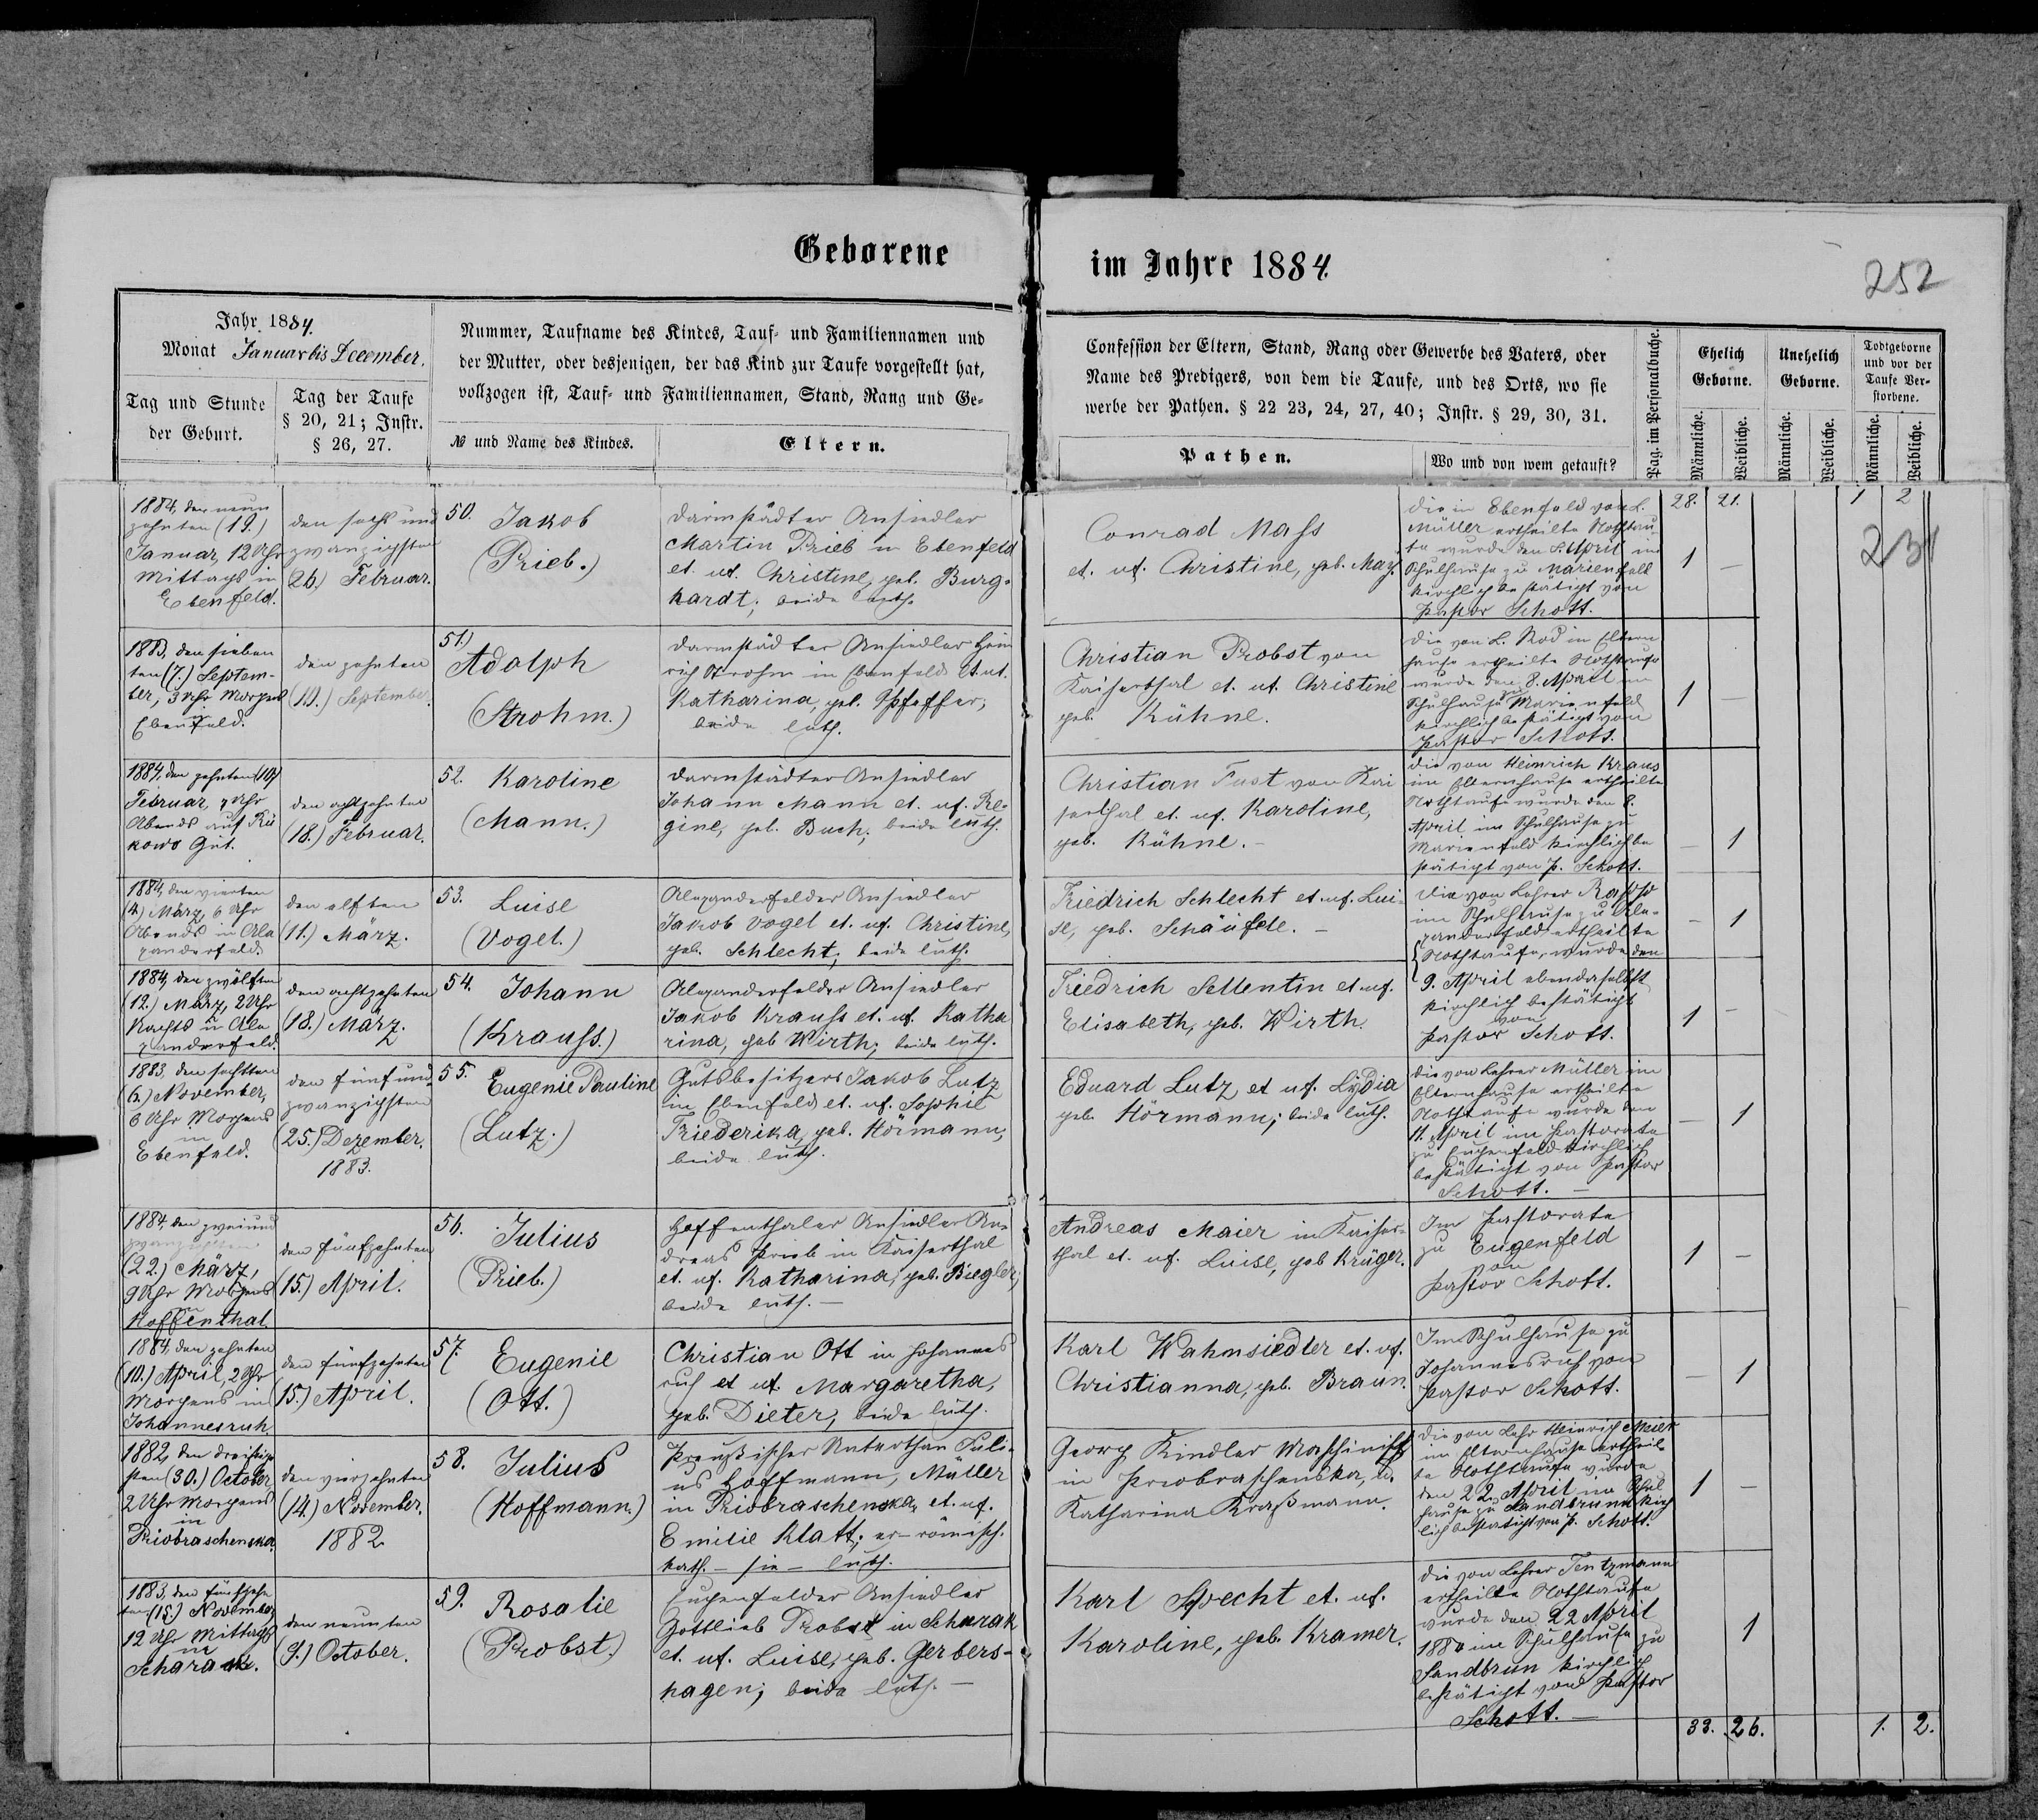 Geborene im Jahre 1884.
252
Jahr 1884.
Monat Januar bis December.
Tag und Stunde
der Geburt.
Tag der Taufe
§ 20, 21; Instr.
§ 26, 27.
Nummer, Taufname des Kindes, Tauf- und Familiennamen und
der Mutter, oder desjenigen, der das Kind zur Taufe vorgestellt hat,
vollzogen ist, Tauf- und Familiennamen, Stand, Rang und Ge-
№ und Name des Kindes.
Eltern.
Confession der Eltern, Stand, Rang oder Gewerbe des Vaters, oder
Name des Predigers, von dem die Taufe, und des Orts, wo sie
werbe der Pathen. § 22 23, 24, 27, 40; Instr. § 29, 30, 31.
Pathen.
Wo und von wem getauft?
Pag. im Personalbuche.
Ehelich
Geborne.
Unehelich
Geborne.
Todtgeborne
und vor der
Taufe Ver-
storbene.
Männliche.
Weibliche.
Männliche.
Weibliche.
Männliche.
Weibliche.
28. 21. 1 2
231
1884, den neun
zehnten (19.)
Januar, 12 Uhr
Mittags in
Ebenfeld.
den sechs und
zwanzigsten
(26.) Februar.
50. Jakob
(Prieb.)
Darmstädter Ansiedler
Martin Prieb in Ebenfeld
et. ux. Christine, geb. Burg-
hardt; beide luth.
Conrad Mass
et. ux. Christine, geb. May.
die in Ebenfeld von L.
Müller ertheilte Nothtau-
fe wurde den 8. April im
Schulhause zu Marienfeld
kirchlich bestätigt von
Pastor Schott.
1 —
1883, den sieben
ten (7.) Septem-
ber, 3 Uhr Morgens
Ebenfeld.
den zehnten
(10.) September.
51.) Adolph
(Strohm.)
Darmstädter Ansiedler Hein
rich Strohm in Ebenfeld et. ux.
Katharina, geb. Pfeffer,
beide luth.
Christian Probst von
Kaiserthal et. ux. Christine
geb. Kühne.
die von L. Rod in Eltern
hause ertheilte Nothtaufe
wurde den 8. April im
Schulhause zu Marienfeld
kirchlich bestätigt von
Pastor Schott.
1 —
1884, den zehnten (10)
Februar, 7 Uhr
Abends auf Rü
kows Gut.
den achtzehnten
(18.) Februar.
52. Karoline
(Mann.)
Darmstädter Ansiedler
Johann Mann et. ux. Re-
gine, geb. Buch; beide luth.
Christian Fust von Kai
serthal et. ux. Karoline,
geb. Kühne. —
die von Heinrich Kraus
im Elternhause ertheilte
Nothtaufe wurde den 8.
April im Schulhause zu
Marienfeld kirchlich be
stätigt von P. Schott.
— 1
1884, den vierten
(4.) März, 6 Uhr
Abends in Ale
xanderfeld.
den elften
(11.) März.
53. Luise
(Vogel.)
Alexanderfelder Ansiedler
Jakob Vogel et. ux. Christine,
geb. Schlecht; beide luth.
Friedrich Schlecht et. ux. Lui-
se, geb. Schäufele. —
die von Lehrer Rapp
im Schulhause zu Ale-
xanderfeld ertheilte
Nothtaufe, wurde den
— 1
1884, den zwölften
(12.) März, 2 Uhr
Nachts in Ale
xanderfeld.
den achtzehnten
(18.) März.
54. Johann
(Krauss.)
Alexanderfelder Ansiedler
Jakob Krauss et. ux. Katha
rina, geb Wirth; beide luth.
Friedrich Sellentin et. ux.
Elisabeth, geb. Wirth.
9. April ebendaselbst
kirchlich bestätigt
von
Pastor Schott.
1 —
1883, den sechsten
(6.) November,
6 Uhr Morgens
in
Ebenfeld.
den fünf und
zwanzigsten
(25.) Dezember.
1883.
55. Eugenie Pauline
(Lutz.)
Gutsbesitzers Jakob Lutz
in Ebenfeld et. ux. Sophie
Friederika, geb. Hörmann,
beide luth.
Eduard Lutz et ux. Lydia
geb. Hörmann; beide luth.
die von Lehrer Müller im
Elternhause ertheilte
Nothtaufe wurde den
11. April im Pastorate
zu Eugenfeld kirchlich
bestätigt von Pastor
Schott. —
— 1
1884, den zweiund
zwanzigsten
(22.) März,
9 Uhr Morgens
in
Hoffenthal.
den fünfzehnten
(15.) April.
56. Julius
(Prieb.)
Hoffenthaler Ansiedler An-
dreas Prieb in Kaiserthal
et. ux. Katharina, geb. Biegler,
beide luth. —
Andreas Maier in Kaiser-
thal et. ux. Luise, geb Krüger.
Im Pastorate
zu Eugenfeld
von
Pastor Schott.
1 —
1884, den zehnten
(10.) April, 2 Uhr
Morgens in
Johannesruh.
den fünfzehnten
(15.) April.
57. Eugenie
(Ott.)
Christian Ott in Johannes
ruh et ux. Margaretha,
geb. Dieter, beide luth.
Karl Wahmsiedler et. ux.
Christianna, geb. Braun.
Im Schulhause zu
Johannesruh von
Pastor Schott.
— 1
1882, den dreißig
sten (30.) October,
2 Uhr Morgens
in
Priobraschenska.
den vierzehnten
(14.) November.
1882
58. Julius
(Hoffmann.)
Preußischer Unterthan Juli-
us Hoffmann, Müller
in Priobraschenska, et. ux.
Emilie Klatt; er – römisch.
kath. – sie – luth.
Georg Kindler Maschinist
in Priobraschenska, u.
Katharina Kraßmann.
die von Lehr Heinrich Meier
im Elternhause ertheil-
te Nothtaufe wurde
den 22. April im Schul
hause zu Sandbrunn kirch
lich bestätigt von P. Schott.
1 —
1883, den fünfzehn
ten (15.) November
12 Uhr Mittags
in
Scharak.
den neunten
(9.) October.
59. Rosalie
(Probst.)
Eugenfelder Ansiedler
Gottlieb Probst in Scharak
et. ux. Luise, geb. Gerbers-
hagen; beide luth. —
Karl Specht et. ux.
Karoline, geb. Kramer.
die von Lehrer Tentzmann
ertheilte Nothtaufe
wurde den 22 April
1884 im Schulhause zu
Sandbrun kirchlich
bestätigt von Pastor
Schott. —
1
33. 26. 1. 2.